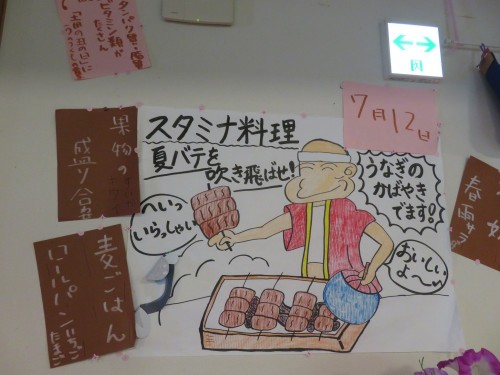 タンパク質・
ビタミン類が
たくさん
「土用の丑の日」に
7月12日
スタミナ料理
夏バテを
吹き飛ばせ!
うなぎの
かばやき
でます!
へいっ
いらっしゃい
おいしい
よ〜
果物の
盛り合
麦ごはん
たまご
春雨サラ